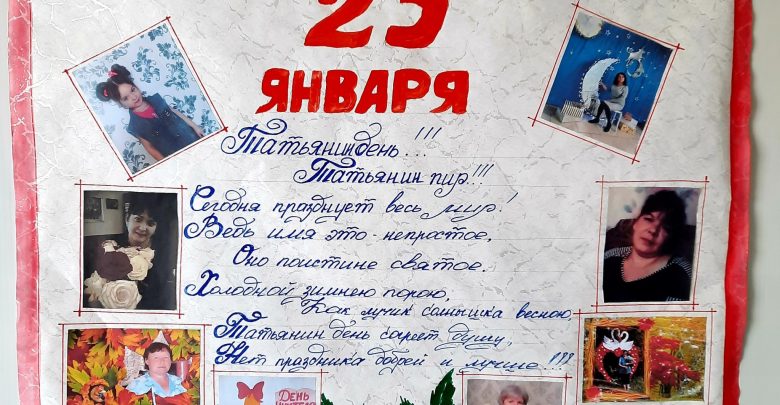 25
ЯНВАРЯ
Татьянин день!!!
Татьянин пир!!!
Сегодня празднует весь мир!
Ведь имя это - непростое,
Оно поистине святое.
Холодной зимнею порою,
Как лучик солнышка весною,
Татьянин день согреет душу,
Нет праздника добрей и лучше...!!!
ДЕНЬ